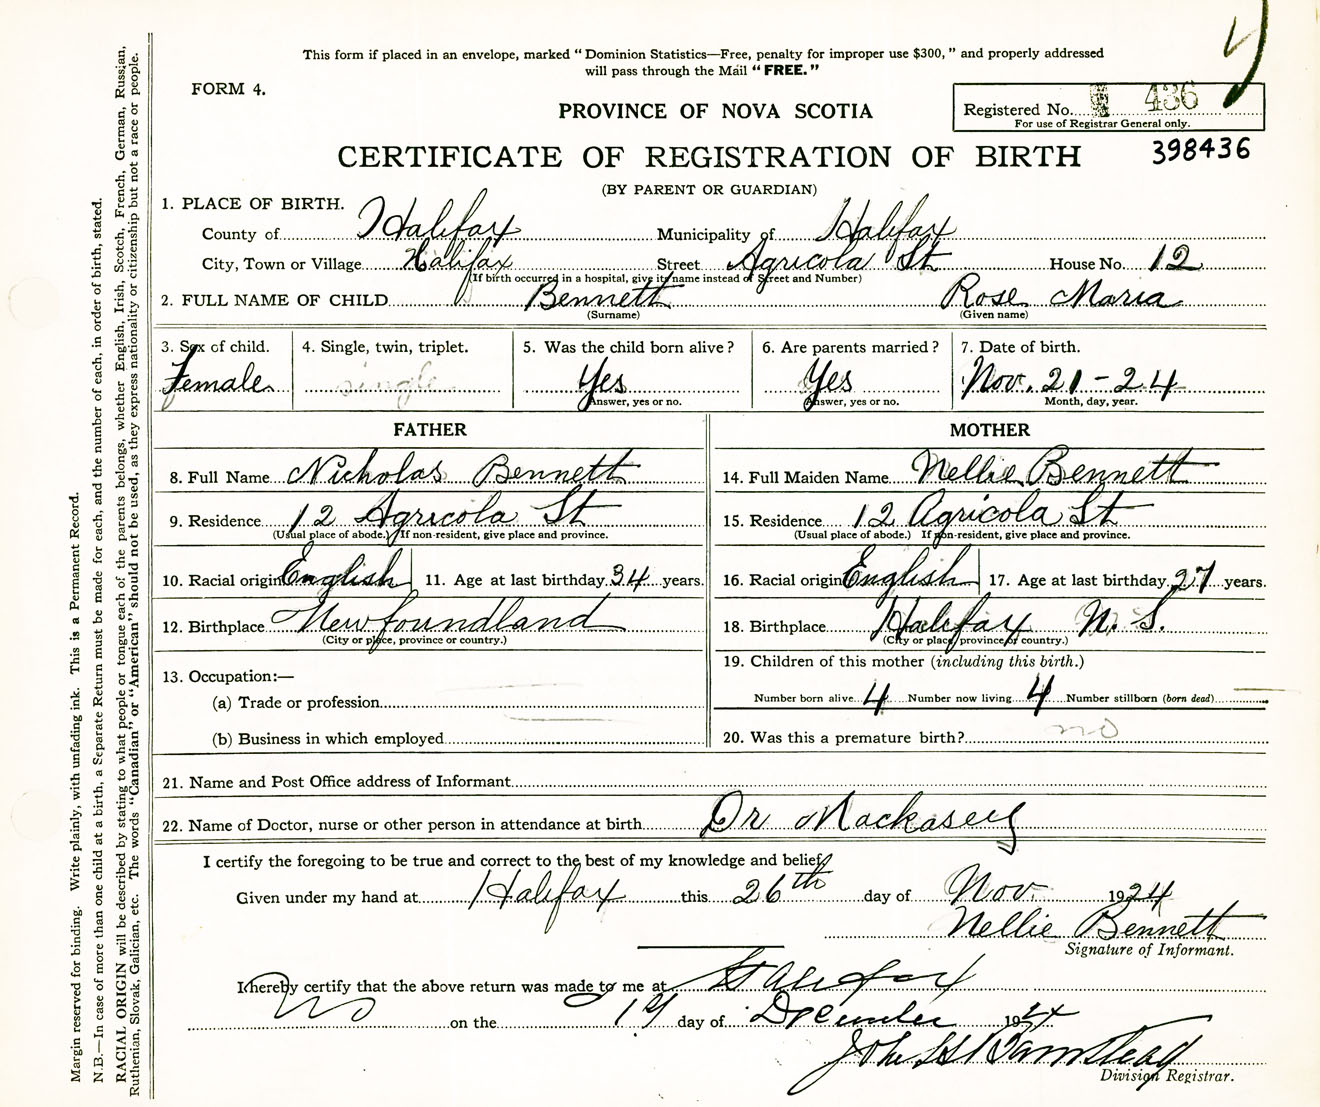 This form if placed in an envelope, marked “ Dominion Statistics—Free, penalty for improper use $300, ” and properly addressed
will pass through the Mail “ FREE. ”
FORM 4.
Registered No. 436
For use of Registrar General only.
PROVINCE OF NOVA SCOTIA
CERTIFICATE OF REGISTRATION OF BIRTH
398436
(BY PARENT OR GUARDIAN)
1. PLACE OF BIRTH.
County of Halifax Municipality of Halifax
City, Town or Village Halifax Street Agricola St House No. 12
(If birth occurred in a hospital, give its name instead of Street and Number)
2. FULL NAME OF CHILD Bennett Rose Maria
(Surname) (Given name)
3. Sex of child. 4. Single, twin, triplet. 5. Was the child born alive? 6. Are parents married? 7. Date of birth.
Female single Yes Yes Nov. 21 - 24
Answer, yes or no. Answer, yes or no. Month, day, year.
FATHER MOTHER
8. Full Name Nicholas Bennett 14. Full Maiden Name Nellie Bennett
9. Residence 12 Agricola St 15. Residence 12 Agricola St
(Usual place of abode.) If non-resident, give place and province. (Usual place of abode.) If non-resident, give place and province.
10. Racial origin English 11. Age at last birthday 34 years. 16. Racial origin English 17. Age at last birthday 27 years.
12. Birthplace Newfoundland 18. Birthplace Halifax N. S.
(City or place, province or country.) (City or place, province or country.)
13. Occupation:— 19. Children of this mother (including this birth.)
(a) Trade or profession Number born alive 4 Number now living 4 Number stillborn (born dead)
(b) Business in which employed 20. Was this a premature birth? no
21. Name and Post Office address of Informant
22. Name of Doctor, nurse or other person in attendance at birth Dr Mackasey
I certify the foregoing to be true and correct to the best of my knowledge and belief
Given under my hand at Halifax this 26th day of Nov. 1924
Nellie Bennett
Signature of Informant.
I hereby certify that the above return was made to me at Halifax
NS on the 19 day of December 1924
John
Division Registrar.
Margin reserved for binding. Write plainly, with unfading ink. This is a Permanent Record.
N.B.—In case of more than one child at a birth, a Separate Return must be made for each, and the number of each, in order of birth, stated.
RACIAL ORIGIN will be described by stating to what people or tongue each of the parents belongs, whether English, Irish, Scotch, French, German, Russian,
Ruthenian, Slovak, Galician, etc. The words “Canadian” or “American” should not be used, as they express nationality or citizenship but not a race or people.